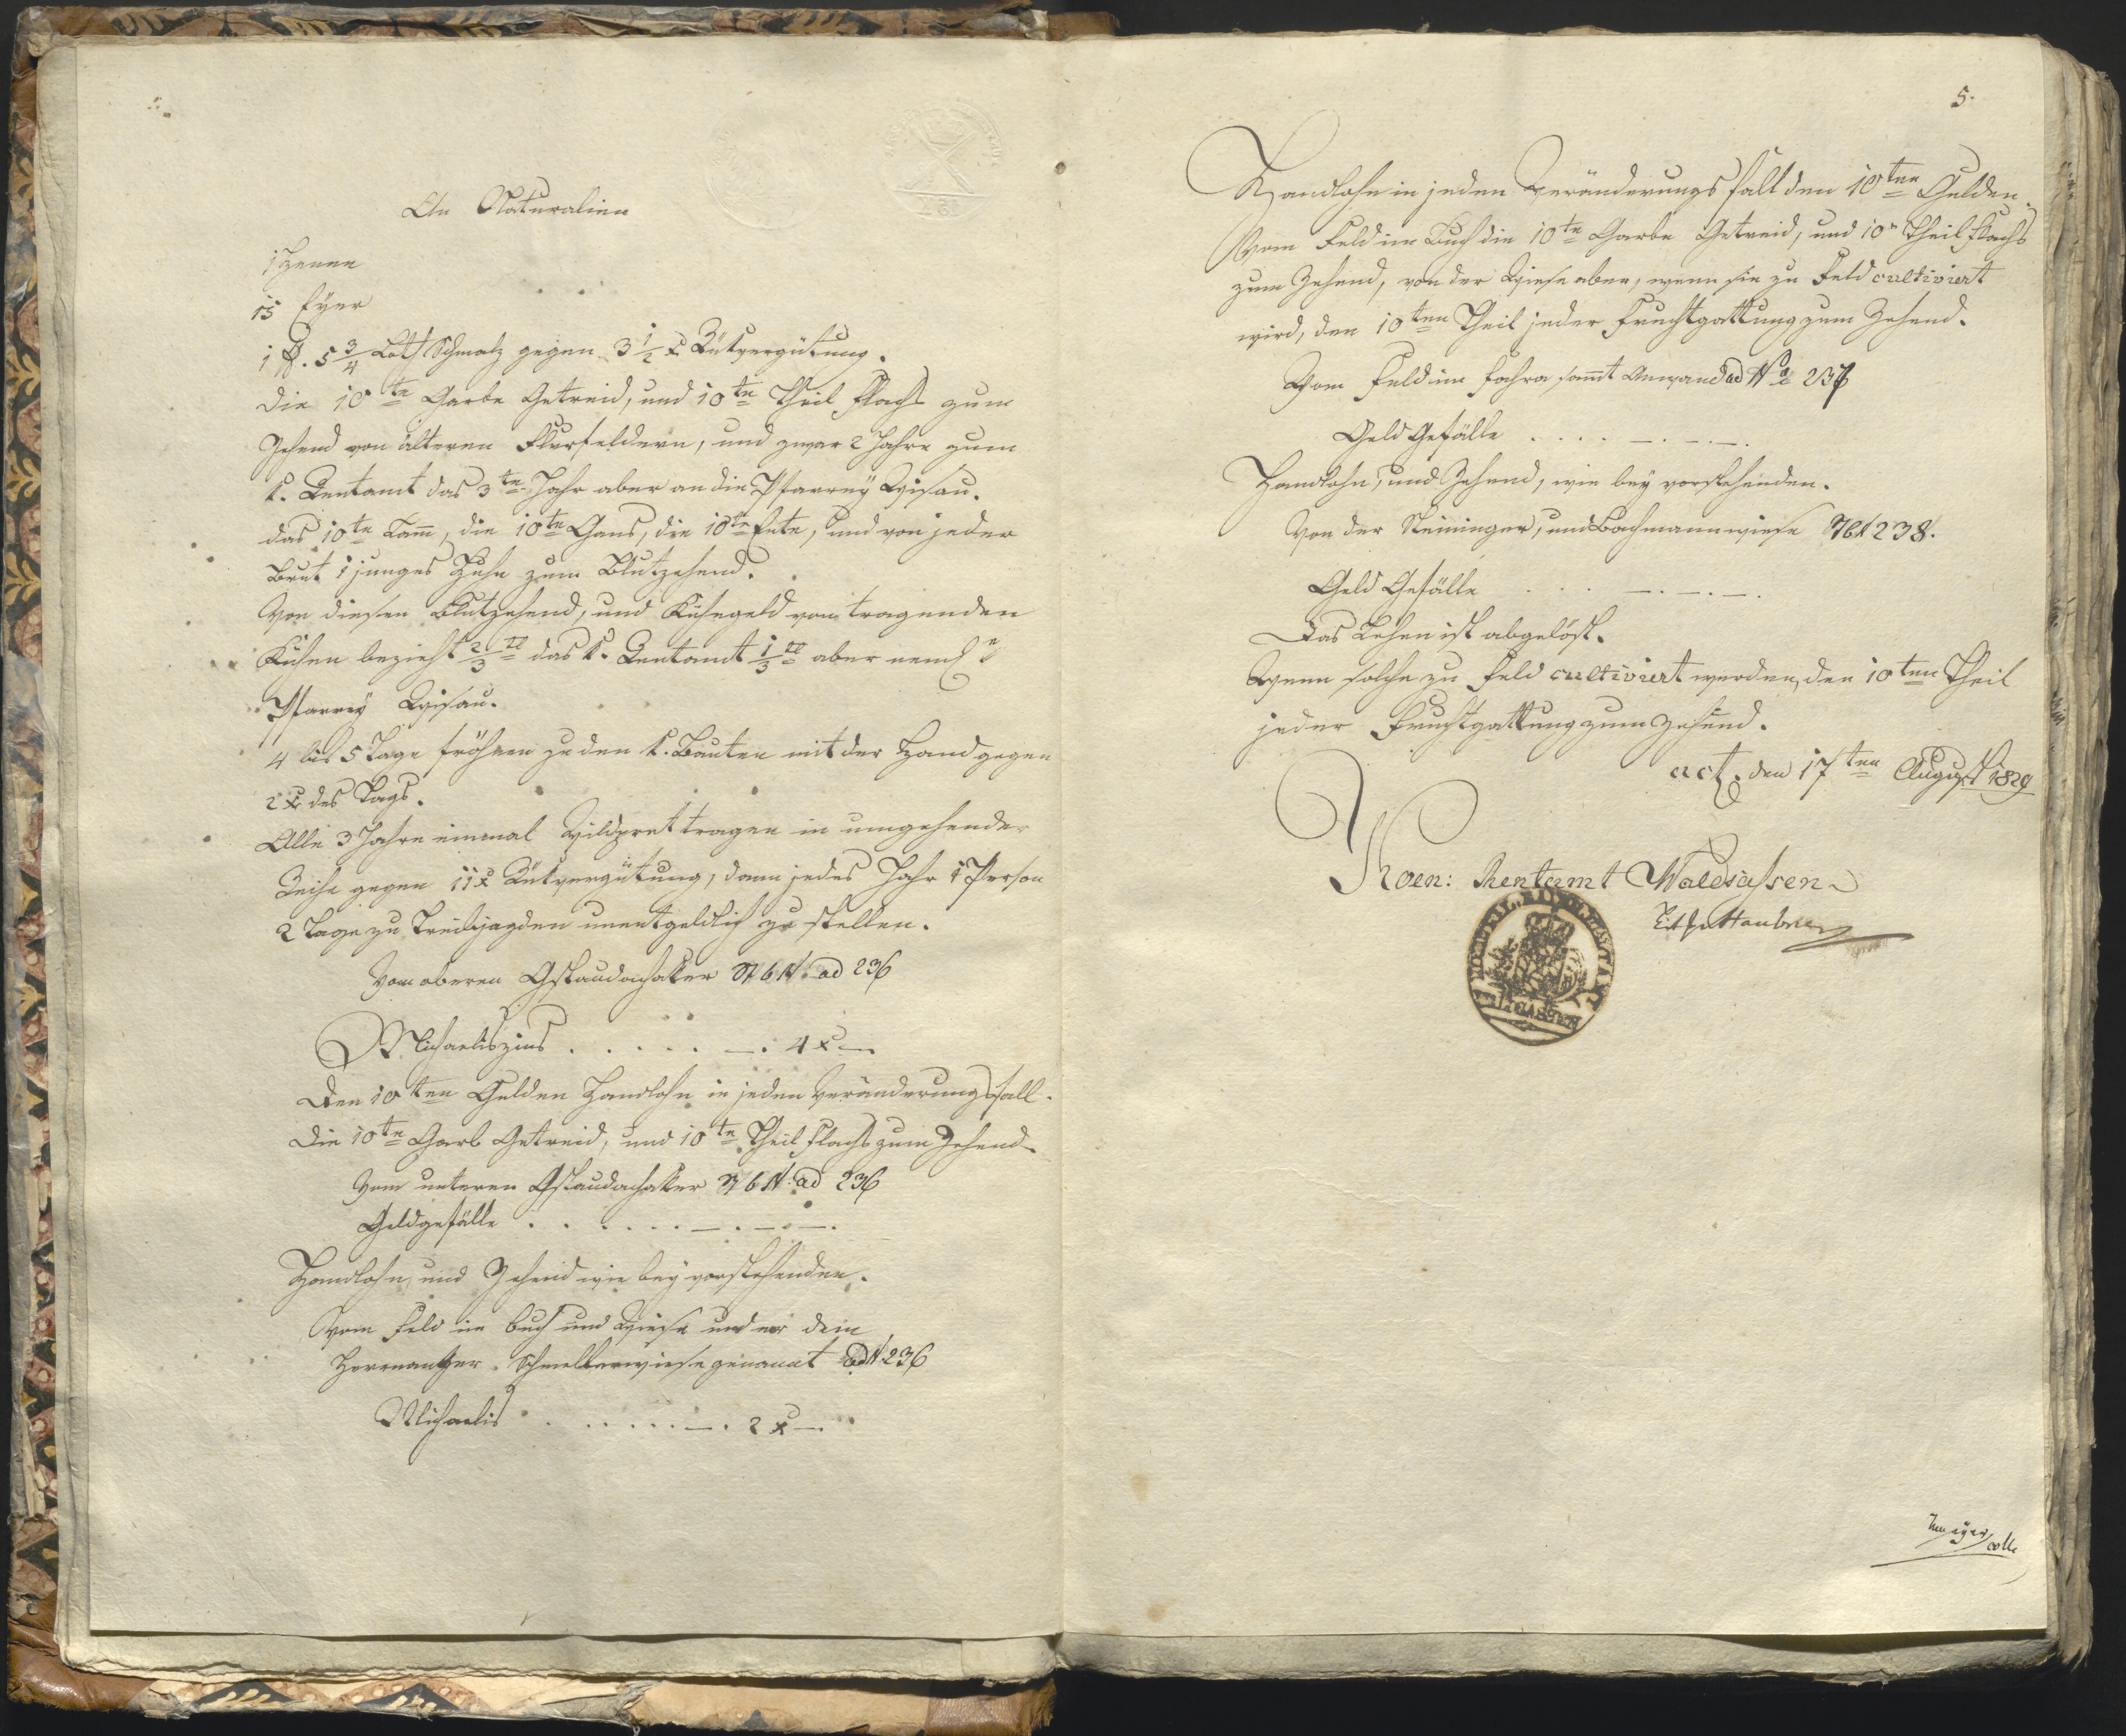 An Naturalien
1 Henne
15 Eyer
1 ℔. 5 3/4 Loth Schmalz gegen 3 1/2 x Rükvergütung.
die 10te Garbe Getreid, und 10te Theil Flachs zum
Zehend von älteren Flurfeldern, und zwar 2 Jahre zum
k. Rentamt das 3te Jahr aber an die Pfarrey Wisau.
das 10te Lam̅, die 10te Gans, die 10te Ente, und von jeder
Brut 1 junges Huhn zum Blutzehend.
Von diesen Blutzehend, und Kühegeld von tragenden
Kühen bezieht 2/3tl das k. Rentamt 1/3tl aber
Pfarrey Wisau.
4 bis 5 Tage fröhnen zu den k. Bauten mit der Hand gegen
2 x des Tags.
Alle 3 Jahre einmal Wildpret tragen in umgehender
Reihe gegen 11 x Rükvergütung, dann jedes Jahr 1 Person
2 Tage zu Treibjagden unentgeldlich zu stellen.
Vom oberen Gstaudachaker StbN. ad 236
Michaeliszins . . . . . —. 4 x —.
Den 10ten Gulden Handlohn in jeden Veränderungsfall.
Die 10te Garb Getreid, und 10te Theil Flachs zum Zehend.
Vom unteren Gstaudachaker StbN. ad 236
Geldgefälle . . . . . . —. —. —.
Handlohn, und Zehend wie bey vorstehenden.
Vom Feld im Buch und Wiese
Schmellerwiese genannt ad N. 236
Michaelis . . . . . . —. 2 x —.
5.
Handlohn in jeden Veränderungsfall den 10ten Gulden.
Vom Feld im Buch die 10te Garbe Getreid, und 10n Theil Flachs
zum Zehend, von der Wiese aber, wenn sie zu Feld cultiviert
wird, den 10ten Theil jeder Fruchtgattung zum Zehend.
Vom Feld im sam̅t Anwand ad No 237
Geld Gefälle . . . . —. —. —.
Handlohn, und Zehend, wie bey vorstehenden.
Von der Steininger, und Bachmannwiese StbN 238.
Geld Gefälle . . . —. —. —.
Das Lehen ist abgelöst.
Wenn solche zu Feld cultiviert werden, den 10ten Theil
jeder Fruchtgattung zum Zehend.
act. den 17ten August 1829
Koen: Rentamt Waldsassen